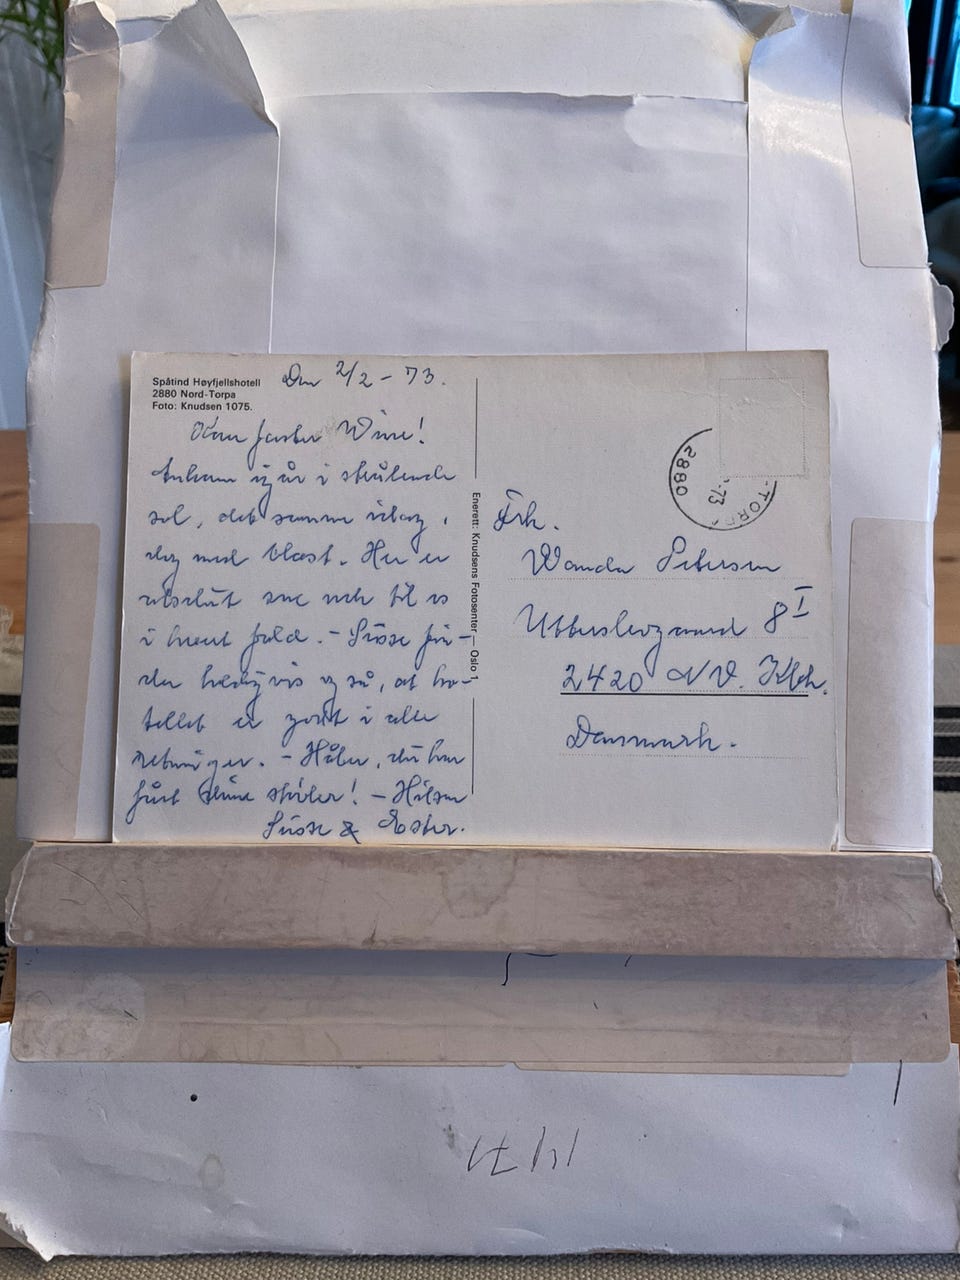 Spåtind Høyfjellshotell
2880 Nord-Torpa
Foto: Knudsen 1075.
Den 2/2 - 73.
Kære faster Wine!
Ankom igår i strålende
sol, det samme idag,
dog med blæst. Her er
absolut sne nok til os
i hvert fald. - Sisse fin-
der heldigvis også, at ho-
tellet er godt i alle
retninger. - Håber, du har
fået dine stole! - Hilsen
Sisse & Ester.
Enerett: Knudsens Fotosenter — Oslo 1
2880
-73
-TORPA
Frk.
Wanda Petersen
Utterslevgaard 8 I
2420 NV. Kbh.
Danmark.